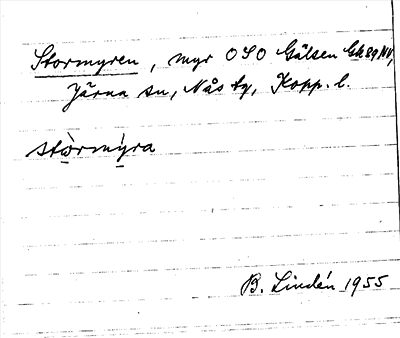 Stormyren, myr OSO Gälsen Gk 89 NV,
Järna sn, Nås tg, Kopp. l.
stòrmýra
B. Lindén 1955